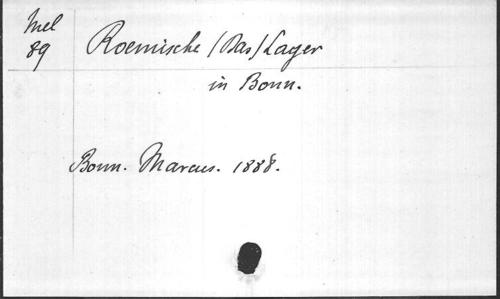 Mel
89
Roemische (Das) Lager
in Bonn.
Bonn. Marcus. 1888.